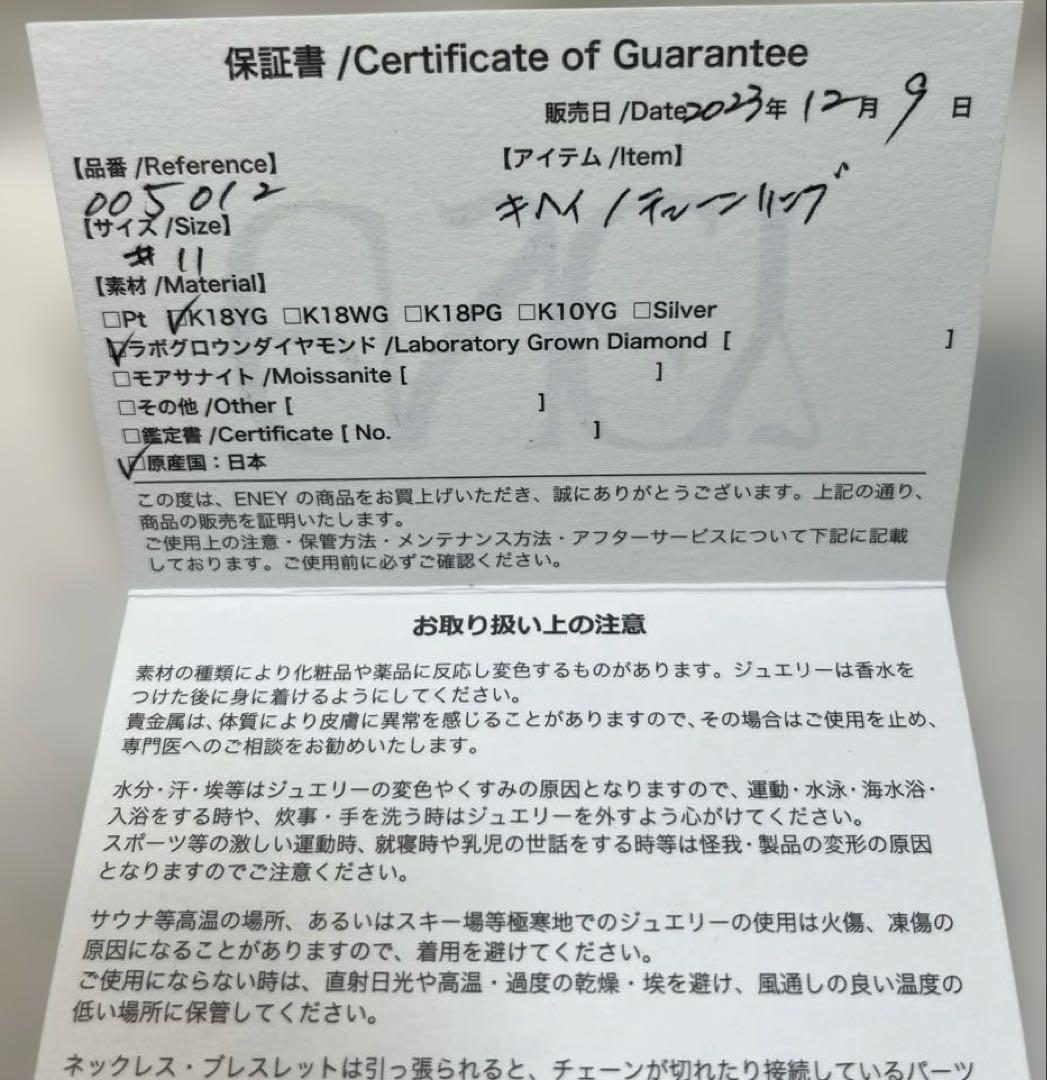 保証書 /Certificate of Guarantee
販売日 /Date 2023年 12月 9日
【品番 /Reference】
005012
【アイテム /Item】
キヘイ / チェーンリング
【サイズ /Size】
#11
【素材 /Material】
□Pt ☑K18YG □K18WG □K18PG □K10YG □Silver
☑ラボグロウンダイヤモンド /Laboratory Grown Diamond [ ]
□モアサナイト /Moissanite [ ]
□その他 /Other [ ]
□鑑定書 /Certificate [ No. ]
☑原産国：日本
この度は、ENEY の商品をお買上げいただき、誠にありがとうございます。上記の通り、
商品の販売を証明いたします。
ご使用上の注意・保管方法・メンテナンス方法・アフターサービスについて下記に記載
しております。ご使用前に必ずご確認ください。
お取り扱い上の注意
素材の種類により化粧品や薬品に反応し変色するものがあります。ジュエリーは香水を
つけた後に身に着けるようにしてください。
貴金属は、体質により皮膚に異常を感じることがありますので、その場合はご使用を止め、
専門医へのご相談をお勧めいたします。
水分・汗・埃等はジュエリーの変色やくすみの原因となりますので、運動・水泳・海水浴・
入浴をする時や、炊事・手を洗う時はジュエリーを外すよう心がけてください。
スポーツ等の激しい運動時、就寝時や乳児の世話をする時等は怪我・製品の変形の原因
となりますのでご注意ください。
サウナ等高温の場所、あるいはスキー場等極寒地でのジュエリーの使用は火傷、凍傷の
原因になることがありますので、着用を避けてください。
ご使用にならない時は、直射日光や高温・過度の乾燥・埃を避け、風通しの良い温度の
低い場所に保管してください。
ネックレス・ブレスレットは引っ張られると、チェーンが切れたり接続しているパーツ